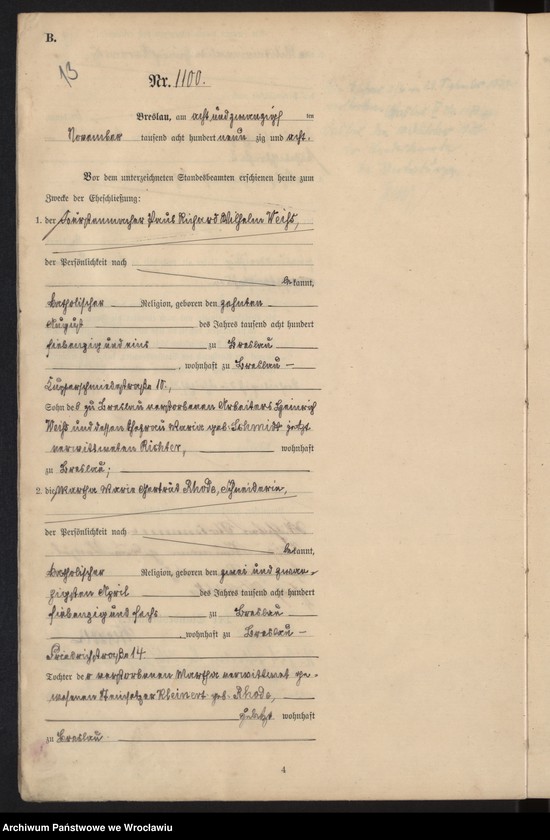 B.
13
Nr. 1100.
Breslau, am acht und zwanzigsten
November tausend acht hundert neun zig und acht.
Vor dem unterzeichneten Standesbeamten erschienen heute zum
Zwecke der Eheschließung:
1. der Bürstenmacher Paul Richard Wilhelm Weihs,
der Persönlichkeit nach
be kannt,
katholischer Religion, geboren den zehnten
August des Jahres tausend acht hundert
siebenzig und eins zu Breslau
, wohnhaft zu Breslau –
Kupferschmiedestraße 10.,
Sohn des zu Breslau verstorbenen Arbeiters Heinrich
Weihs und dessen Ehefrau Maria geb. Schmidt jetzt
verwittweten Richter, wohnhaft
zu Breslau;
2. die Martha Marie Gertrud Rhode, Schneiderin,
der Persönlichkeit nach
be kannt,
katholischer Religion, geboren den zwei und zwan-
zigsten April des Jahres tausend acht hundert
siebenzig und sechs zu Breslau
, wohnhaft zu Breslau –
Friedrichstraße 14
Tochter der verstorbenen Martha verwittwet ge-
wesenen Steinsetzer Kleinert geb. Rhode,
zuletzt wohnhaft
zu Breslau.
4
Archiwum Państwowe we Wrocławiu